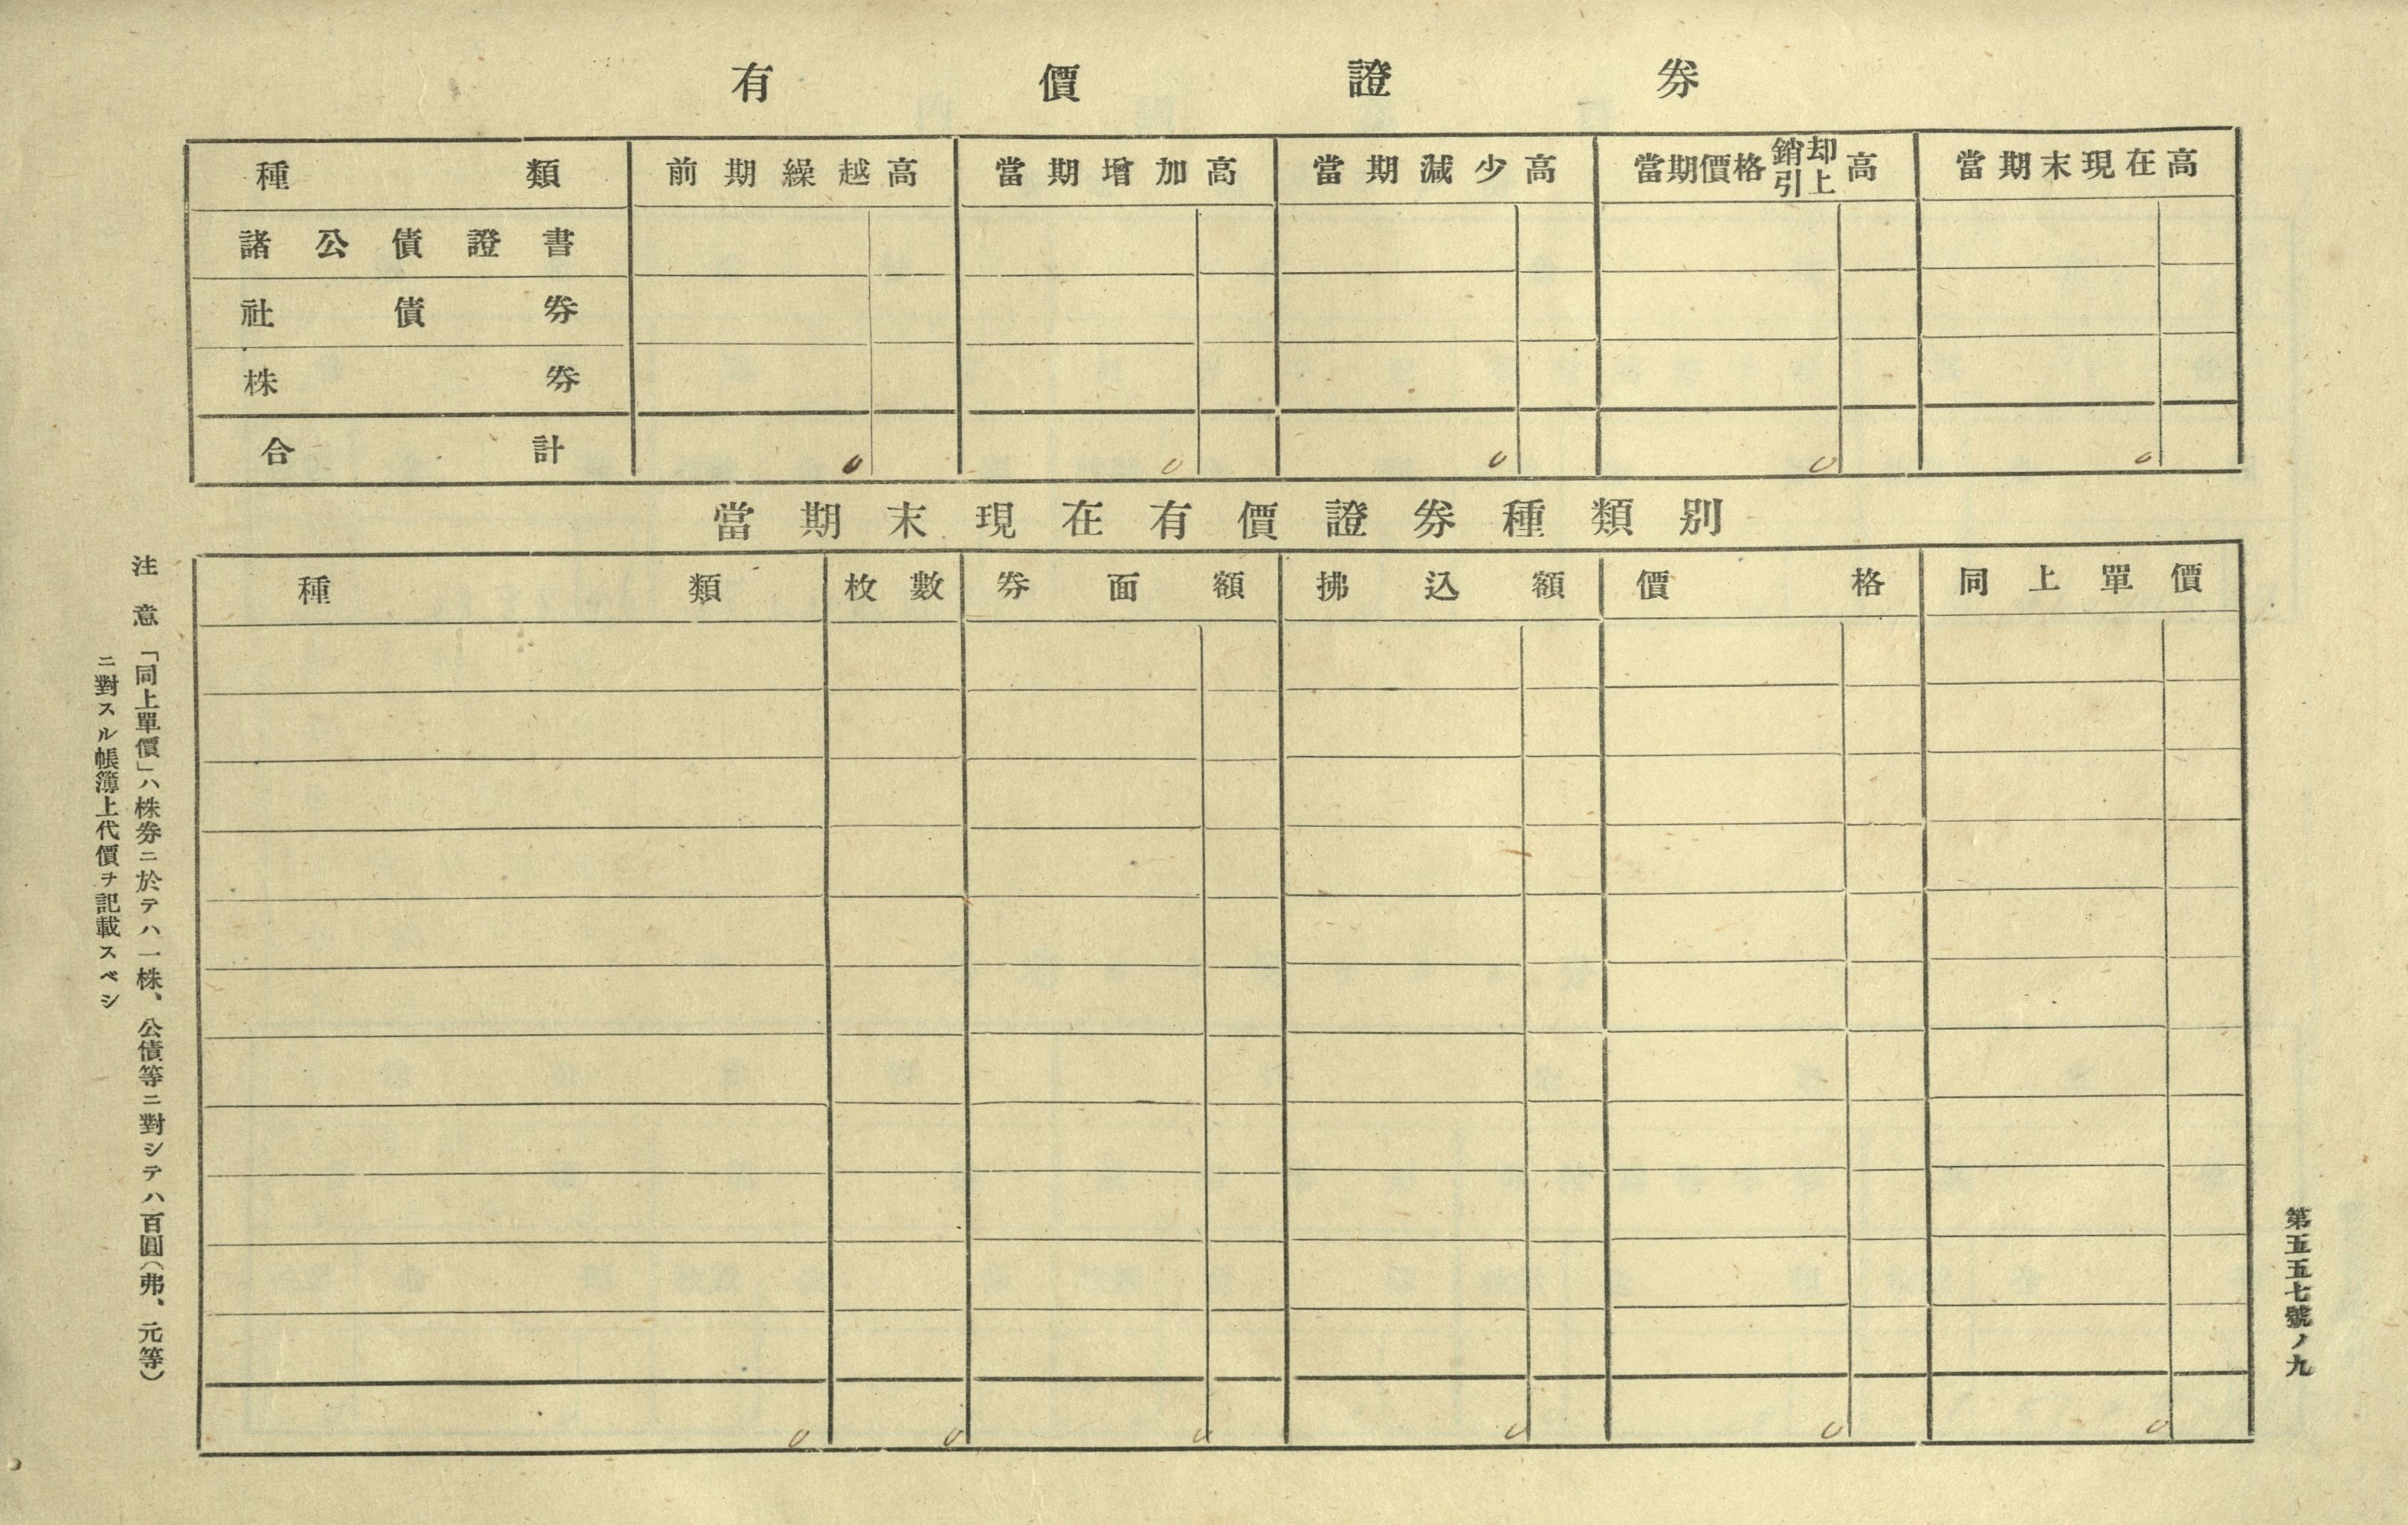 有價證券
種類 前期繰越高 當期增加高 當期減少高 當期價格銷却引上高 當期末現在高
諸公債證書
社債券
株券
合計 0 0 0 0 0
當期末現在有價證券種類別
種類 枚數 券面額 拂込額 價格 同上單價
0 0 0 0 0 0
注意 「同上單價」ハ株券ニ於テハ一株、公債等ニ對シテハ百圓(弗、元等)
ニ對スル帳簿上代價ヲ記載スベシ
第五五七號ノ九